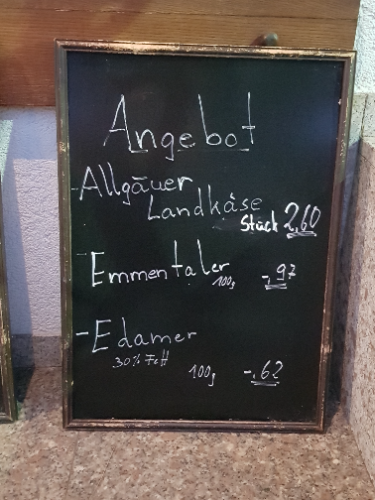 Angebot
- Allgäuer
Landkäse
Stück 2,60
- Emmentaler
100g -,97
- Edamer
30% Fett
100g -,62